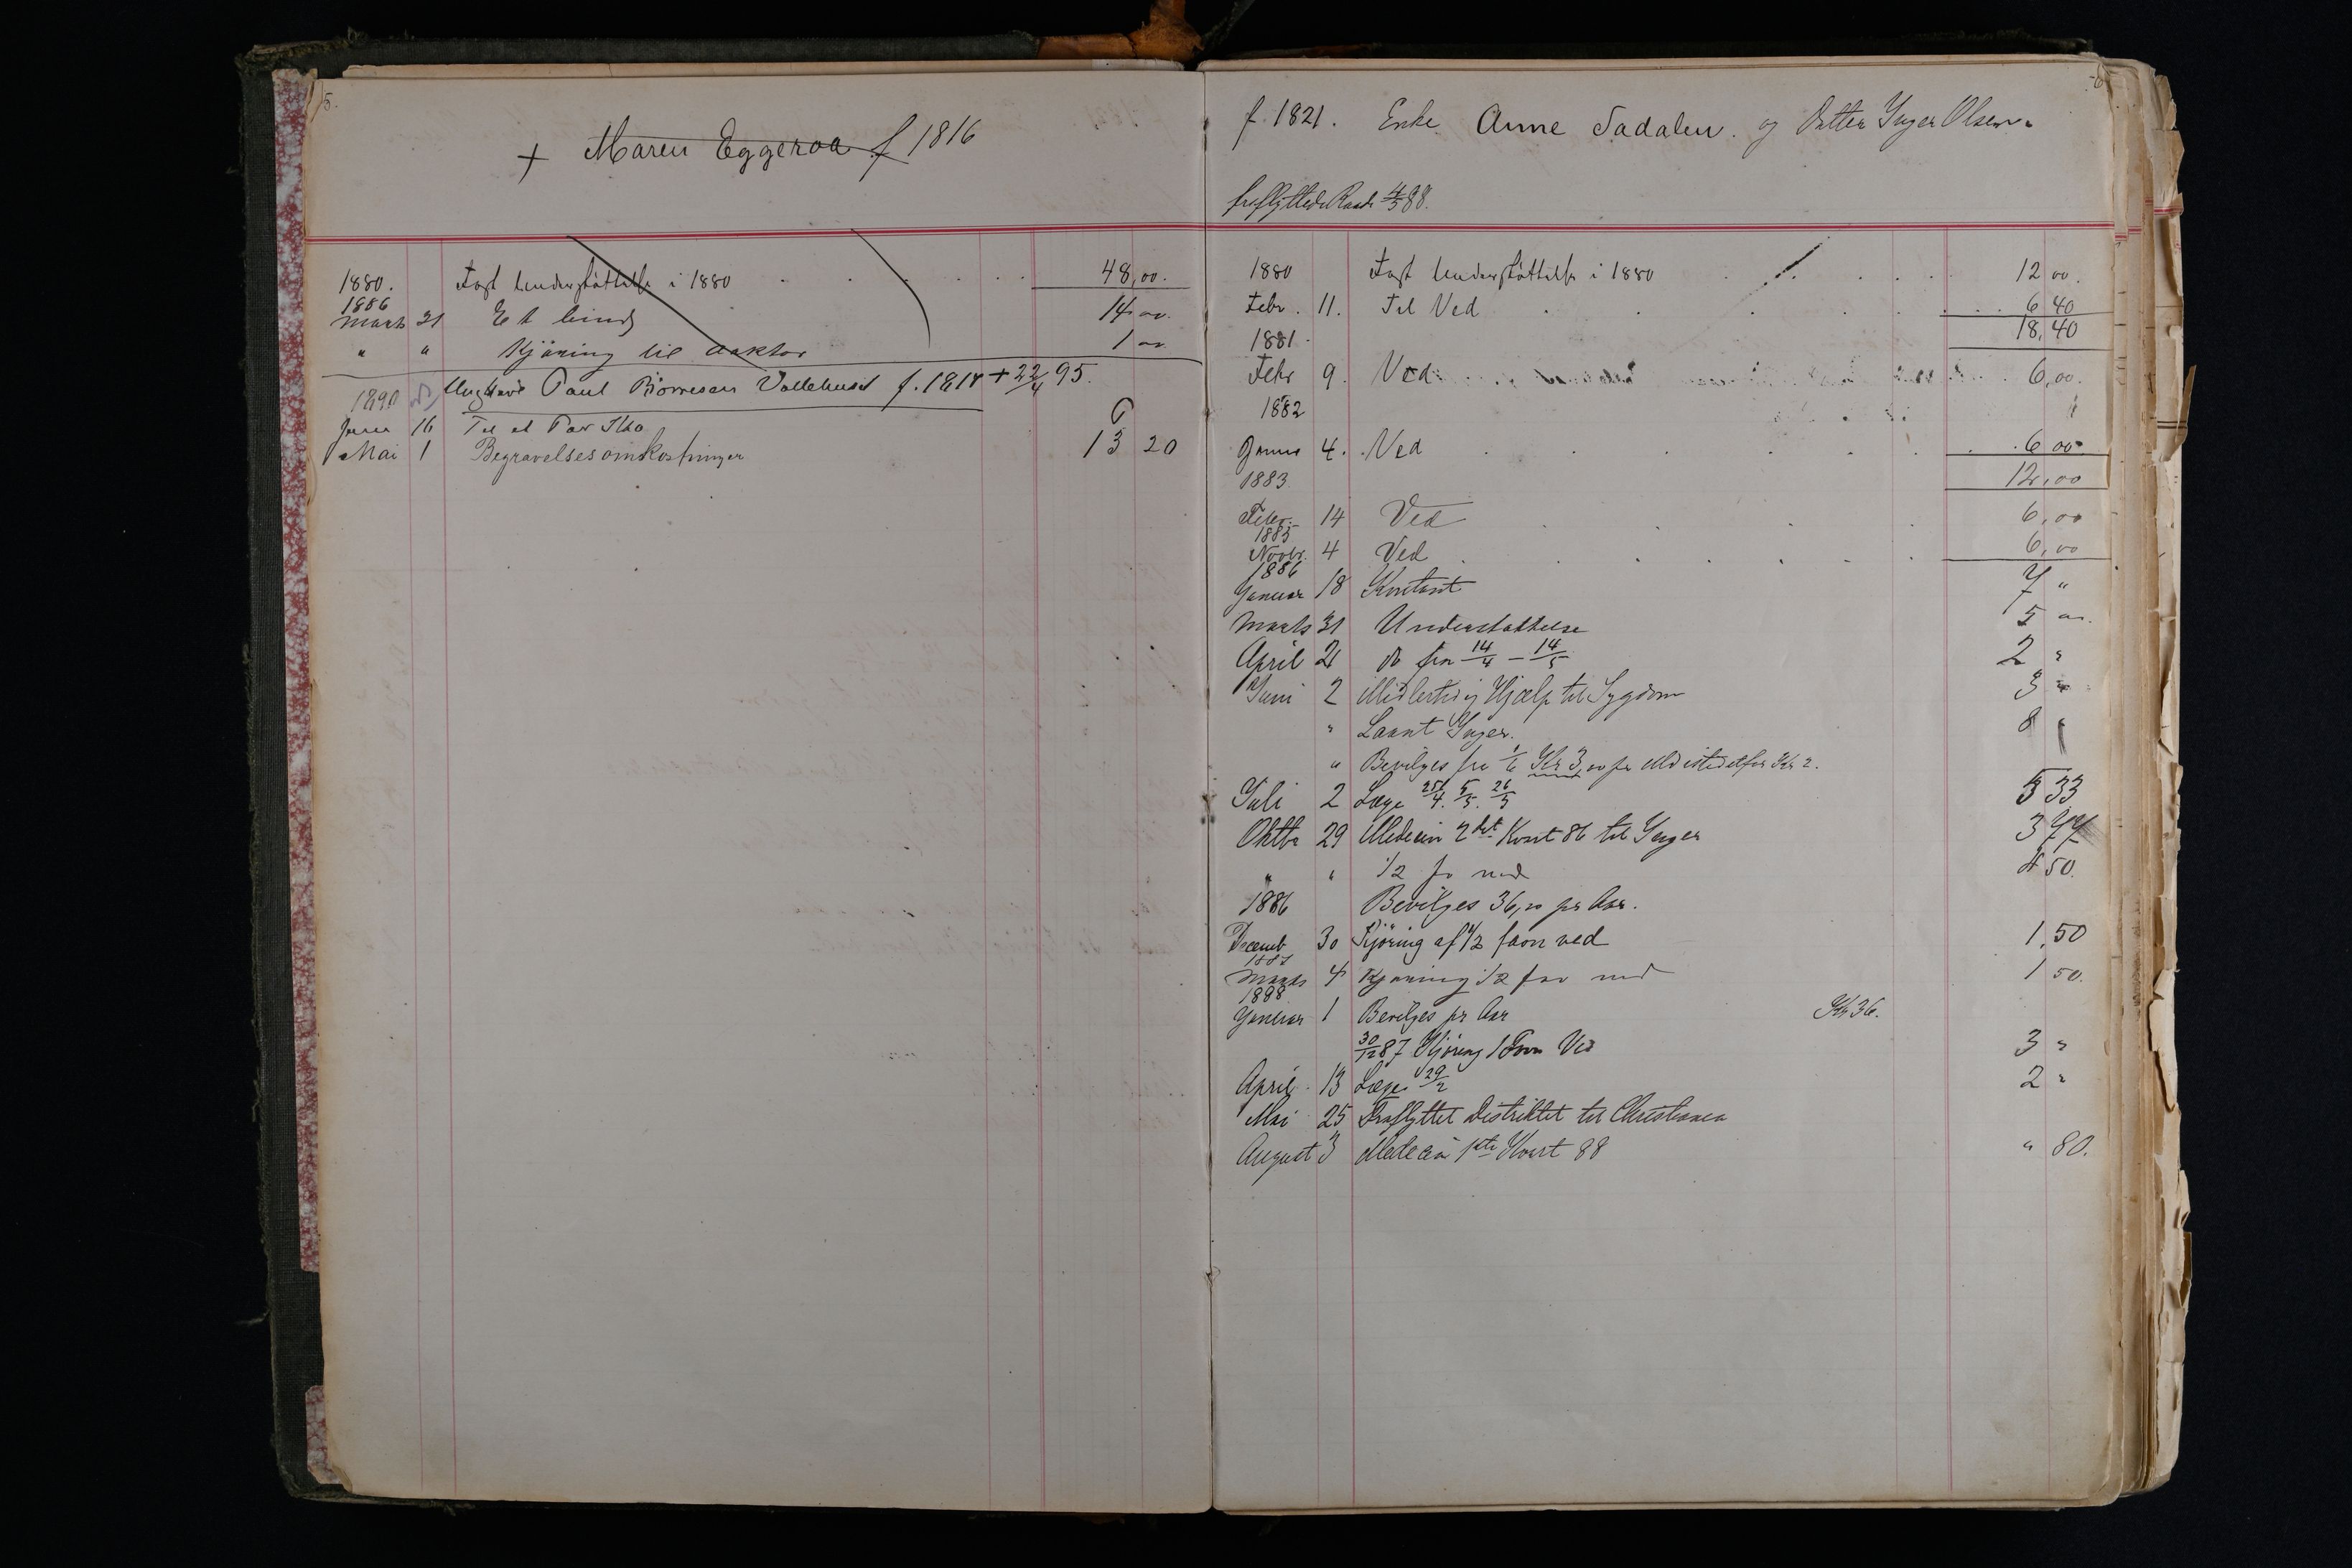 5.
+ Maren Eggeroa f 1816
1880. Fast Understøttelse i 1880 48,00.
1886
Marts 31 Et 14 00.
" " Kjøring til doktor 1 00
Ungkarl Paul Börresen Vallehuset f. 1814 + 22/4 95.
1890
Juni 16 Til et Par Sko 6
Mai 1 Begravelsesomkostninger 13 20
6
f. 1821. Enke Anne Sadalen. og Datter Inger Olsen.
fraflyttede 4/5 88.
1880 Fast Understøttelse i 1880 12 00.
Febr. 11. Til Ved 6 40
18,40
1881.
Febr 9. Ved 6,00.
1882
Januar 4. Ved 6 00
1883. 12,00
Febr. 14 Ved 6,00
1885
Novbr. 4 Ved 6,00
1886
Januar 18 Kontant 7 "
Marts 31 Understøttelse 5 00.
April 21 do fra 14/4 – 14/5 2 "
Juni 2 Midlertidig Hjælp til Sygdom 3 "
" Laant Inger. 8
" Bevilges fra 1/6 Kr 3,00 pr Md istedetfor Kr 2.
Juli 2 Læge 25/4. 5/5. 26/5 5 33
Oktbr 29 Medecin 2det Kvart 86 til Inger 3 77
" " 1/2 fv ved 4 50.
1886 Bevilges 36,00 pr Aar.
Decemb 30 Kjöring af 1/2 favn ved 1,50
1887
Marts 4 Kjøring 1/2 fav ved 1 50.
1898
Januar 1 Bevilges pr Aar Kr 36.
30/12 87 Kjöring 1 Favn Ved 3 "
April 13 Læge 29/2 2 "
Mai 25 Fraflyttet Distriktet til Christiania
August 3 Medecin 1ste Kvart 88 " 80.